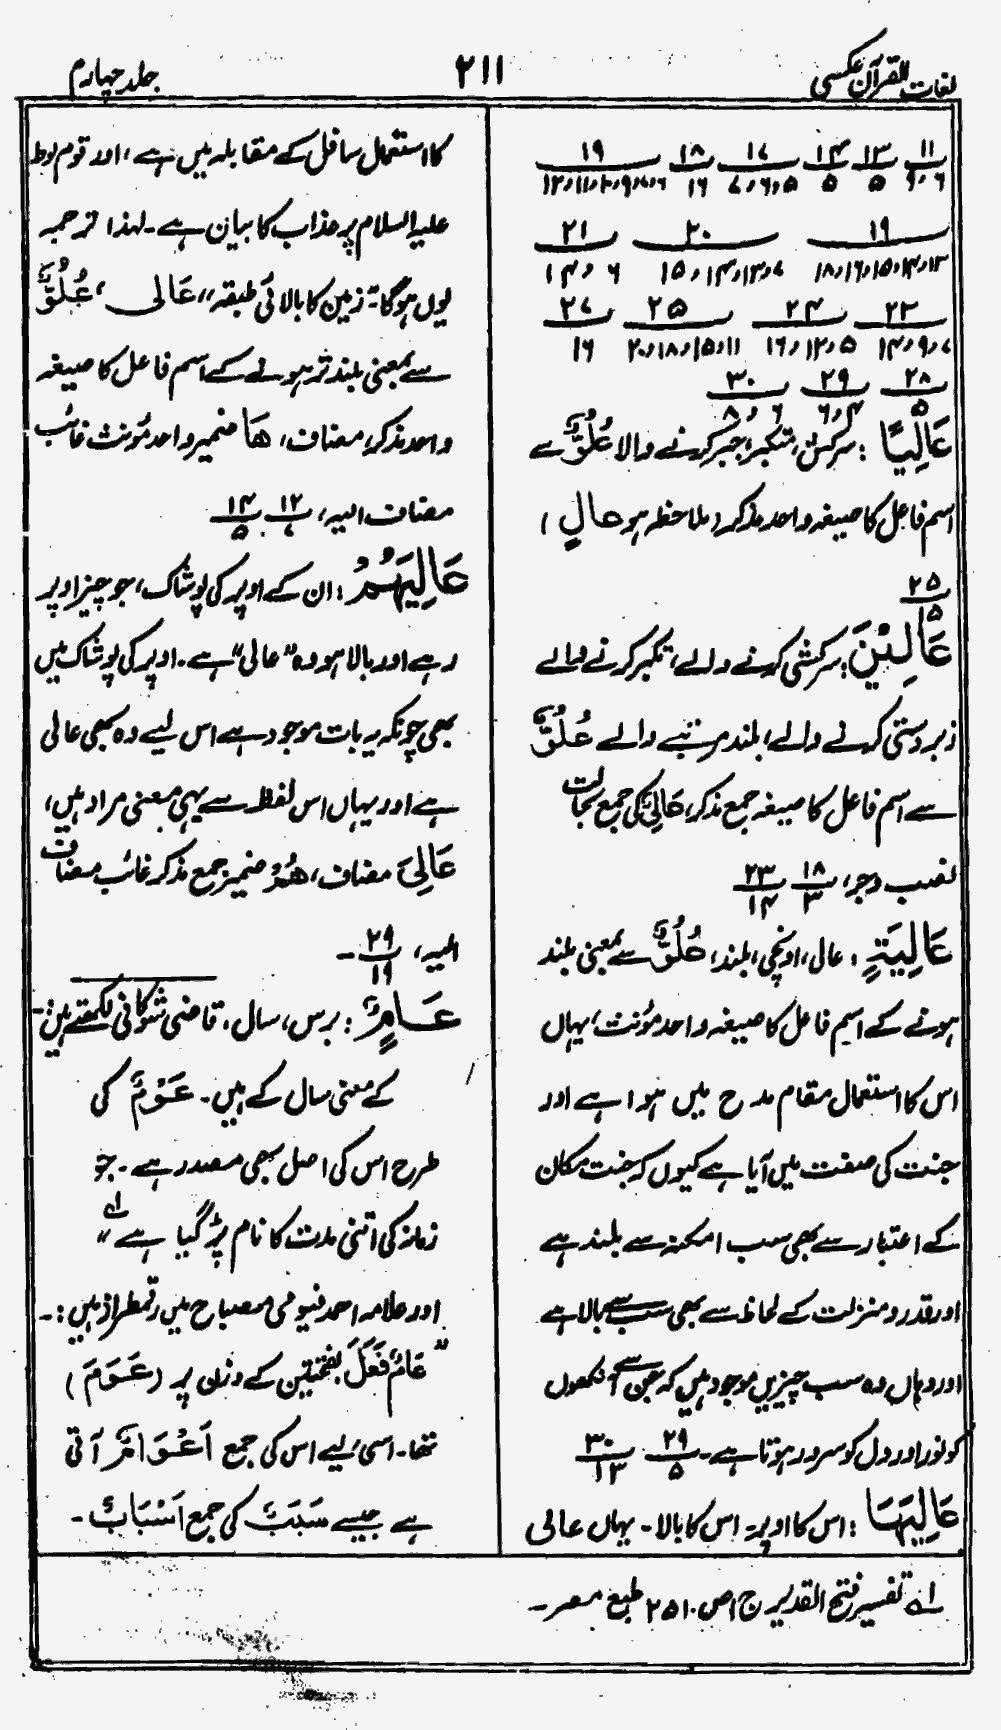 لغات القرآن عکسی
۲۱۱
جلد چہارم
۱۱ ۱۳ ۱۴ ۱۷ ۱۸ ۱۹
۶،۹ ۵ ۵ ۵،۶،۷ ۱۶
۱۹ ۲۰ ۲۱
۱۳،۱۴،۱۵،۱۶،۱۸ ۷،۱۳،۱۴،۱۵ ۶،۱۴
۲۳ ۲۴ ۲۵ ۲۷
۷،۹،۱۴ ۵،۱۲،۱۶ ۱۱،۱۵،۱۸،۲۰ ۱۶
۲۸ ۲۹ ۳۰
۵ ۴،۶ ۶،۸
عَالِيًا : سرکش، متکبر، جبر کرنے والا عُلُوٌّ سے
اسم فاعل کا صیغہ واحد مذکر (ملاحظہ ہو عالٍ)
۲۵
۱۵
عَالِيْنَ : سرکشی کرنے والے، تکبر کرنے والے
زبردستی کرنے والے، بلند مرتبے والے عُلُوٌّ
سے اسم فاعل کا صیغہ جمع مذکر، عَالِی کی جمع بحالت
نصب و جر، ۱۸ ۲۳
۳ ۱۴
عَالِيَةٍ : عال، اونچی، بلند، عُلُوٌّ سے بمعنی بلند
ہونے کے اسم فاعل کا صیغہ واحد مؤنث، یہاں
اس کا استعمال مقام مدح میں ہوا ہے اور
جنت کی صفت میں آیا ہے کیوں کہ جنت مکان
کے اعتبار سے بھی سب امکنہ سے بلند ہے
اور قدر و منزلت کے لحاظ سے بھی سب سے بالا ہے
اور وہاں وہ سب چیزیں موجود ہیں کہ جن سے آنکھوں
کو نور اور دل کو سرور ہوتا ہے۔ ۲۹ ۳۰
۵ ۱۳
عَالِيَهَا : اس کا اوپر، اس کا بالا۔ یہاں عالی
کا استعمال سافل کے مقابلہ میں ہے، اور قوم لوط
علیہ السلام پر عذاب کا بیان ہے۔ لہذا ترجمہ
یوں ہوگا: زمین کا بالائی طبقہ،، عَالی ، عُلُوٌّ
سے بمعنی بلند تر ہونے کے اسم فاعل کا صیغہ
واحد مذکر، مضاف، ھَا ضمیر واحد مؤنث غائب
مضاف الیہ، ۱۲ ۱۴
۷ ۵
عَالِيَهُمْ : ان کے اوپر کی پوشاک، جو چیز اوپر
رہے اور بالا ہو وہ "عالی" ہے۔ اوپر کی پوشاک میں
بھی چونکہ یہ بات موجود ہے اس لیے وہ بھی عالی
ہے اور یہاں اس لفظ سے یہی معنی مراد ہیں،
عَالِیَ مضاف، ھُمْ ضمیر جمع مذکر غائب مضاف
الیہ، ۲۹ ۔
۱۹
عَامٍ : برس، سال، قاضی شوکانی لکھتے ہیں:۔
کے معنی سال کے ہیں۔ عَوْمٌ کی
طرح اس کی اصل بھی مصدر ہے۔ جو
زمانہ کی اتنی مدت کا نام پڑ گیا ہے" ۱ے
اور علامہ احمد فیومی مصباح میں رقمطراز ہیں:۔
"عَامٌ فَعَلَ بفتحتین کے وزن پر (عَوَمَ)
تھا۔ اسی لیے اس کی جمع اَعْوَامٌ آتی
ہے جیسے سَبَبٌ کی جمع اَسْبَابٌ۔
۱ے تفسیر فتح القدیر ج ۱ ص ۲۵۱ طبع مصر۔